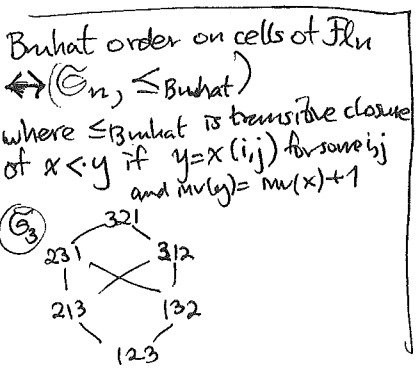 Bruhat order on cells of Fℓn
↔ (𝔖n, ≤Bruhat)
where ≤Bruhat is transitive closure
of x <· y if y=x(i,j) for some i,j
and inv(y)= inv(x)+1
𝔖3
321
231 312
213 132
123